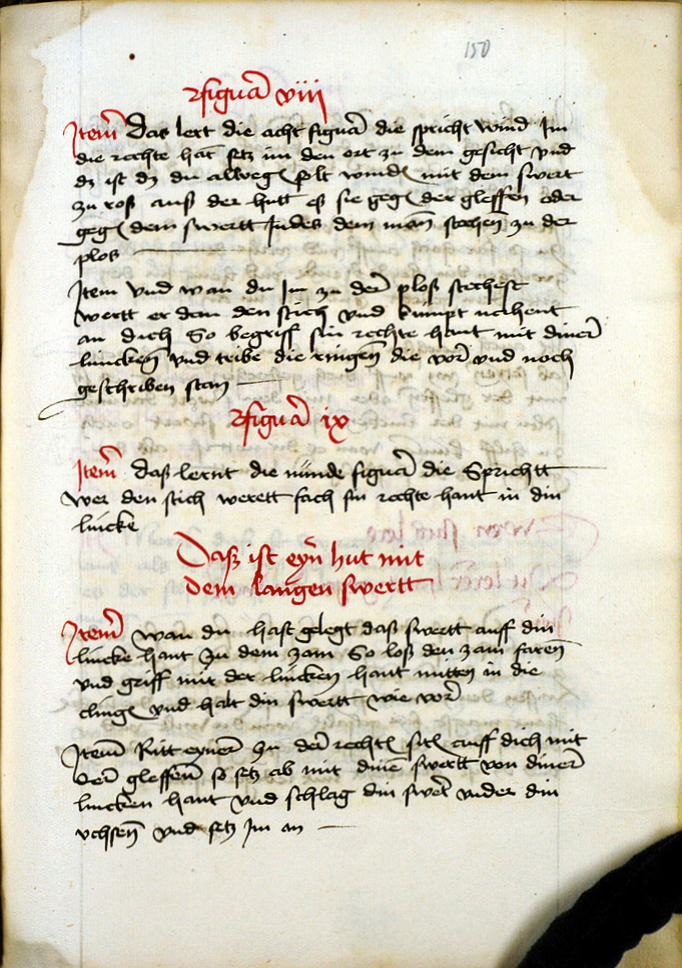 150
Figura viii
Item Das lert die acht figura die spricht wind Im
die rechte hat setz im den ort zu dem gesicht vnd
dz ist dz du allweg solt wind mit dem swert
zu roß auß der hutt eß sie gegen der gleffen oder
gegen dem swertt Indes dem man stechen zu der
plos
Item vnd wan du Im zu der ploß stechest
wertt er dem den stich vnd kumpt nehent
an dich So begriff sin rechte hant mit diner
lincken vnd tribe die ringen die vor vnd noch
geschriben stan
Figura ix
Item daß lernt die nünde figura die Sprichtt
wer den stich werett fach sin rechte hant in din
lincke
Daß ist eyn hut mit
dem langen swertt
Item wan du hast gelegt daß swertt auff din
lincke hant Zu dem zam So loß den zam faren
vnd griff mit der lincken hant mitten in die
cling vnd halt din swertt wie vor
Item Ritt eyner zu der recht sit auff dich mit
der gleffen so setz ab mit dine swertt von diner
lincken hant vnd schlag din swert vnder din
vchsen vnd setz Im an